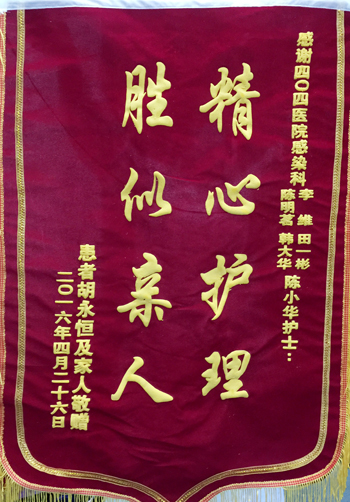 感谢四〇四医院感染科李维田一彬
陈明茗韩大华陈小华护士…
精心护理
胜似亲人
患者胡永恒及家人敬赠
二〇一六年四月二十六日